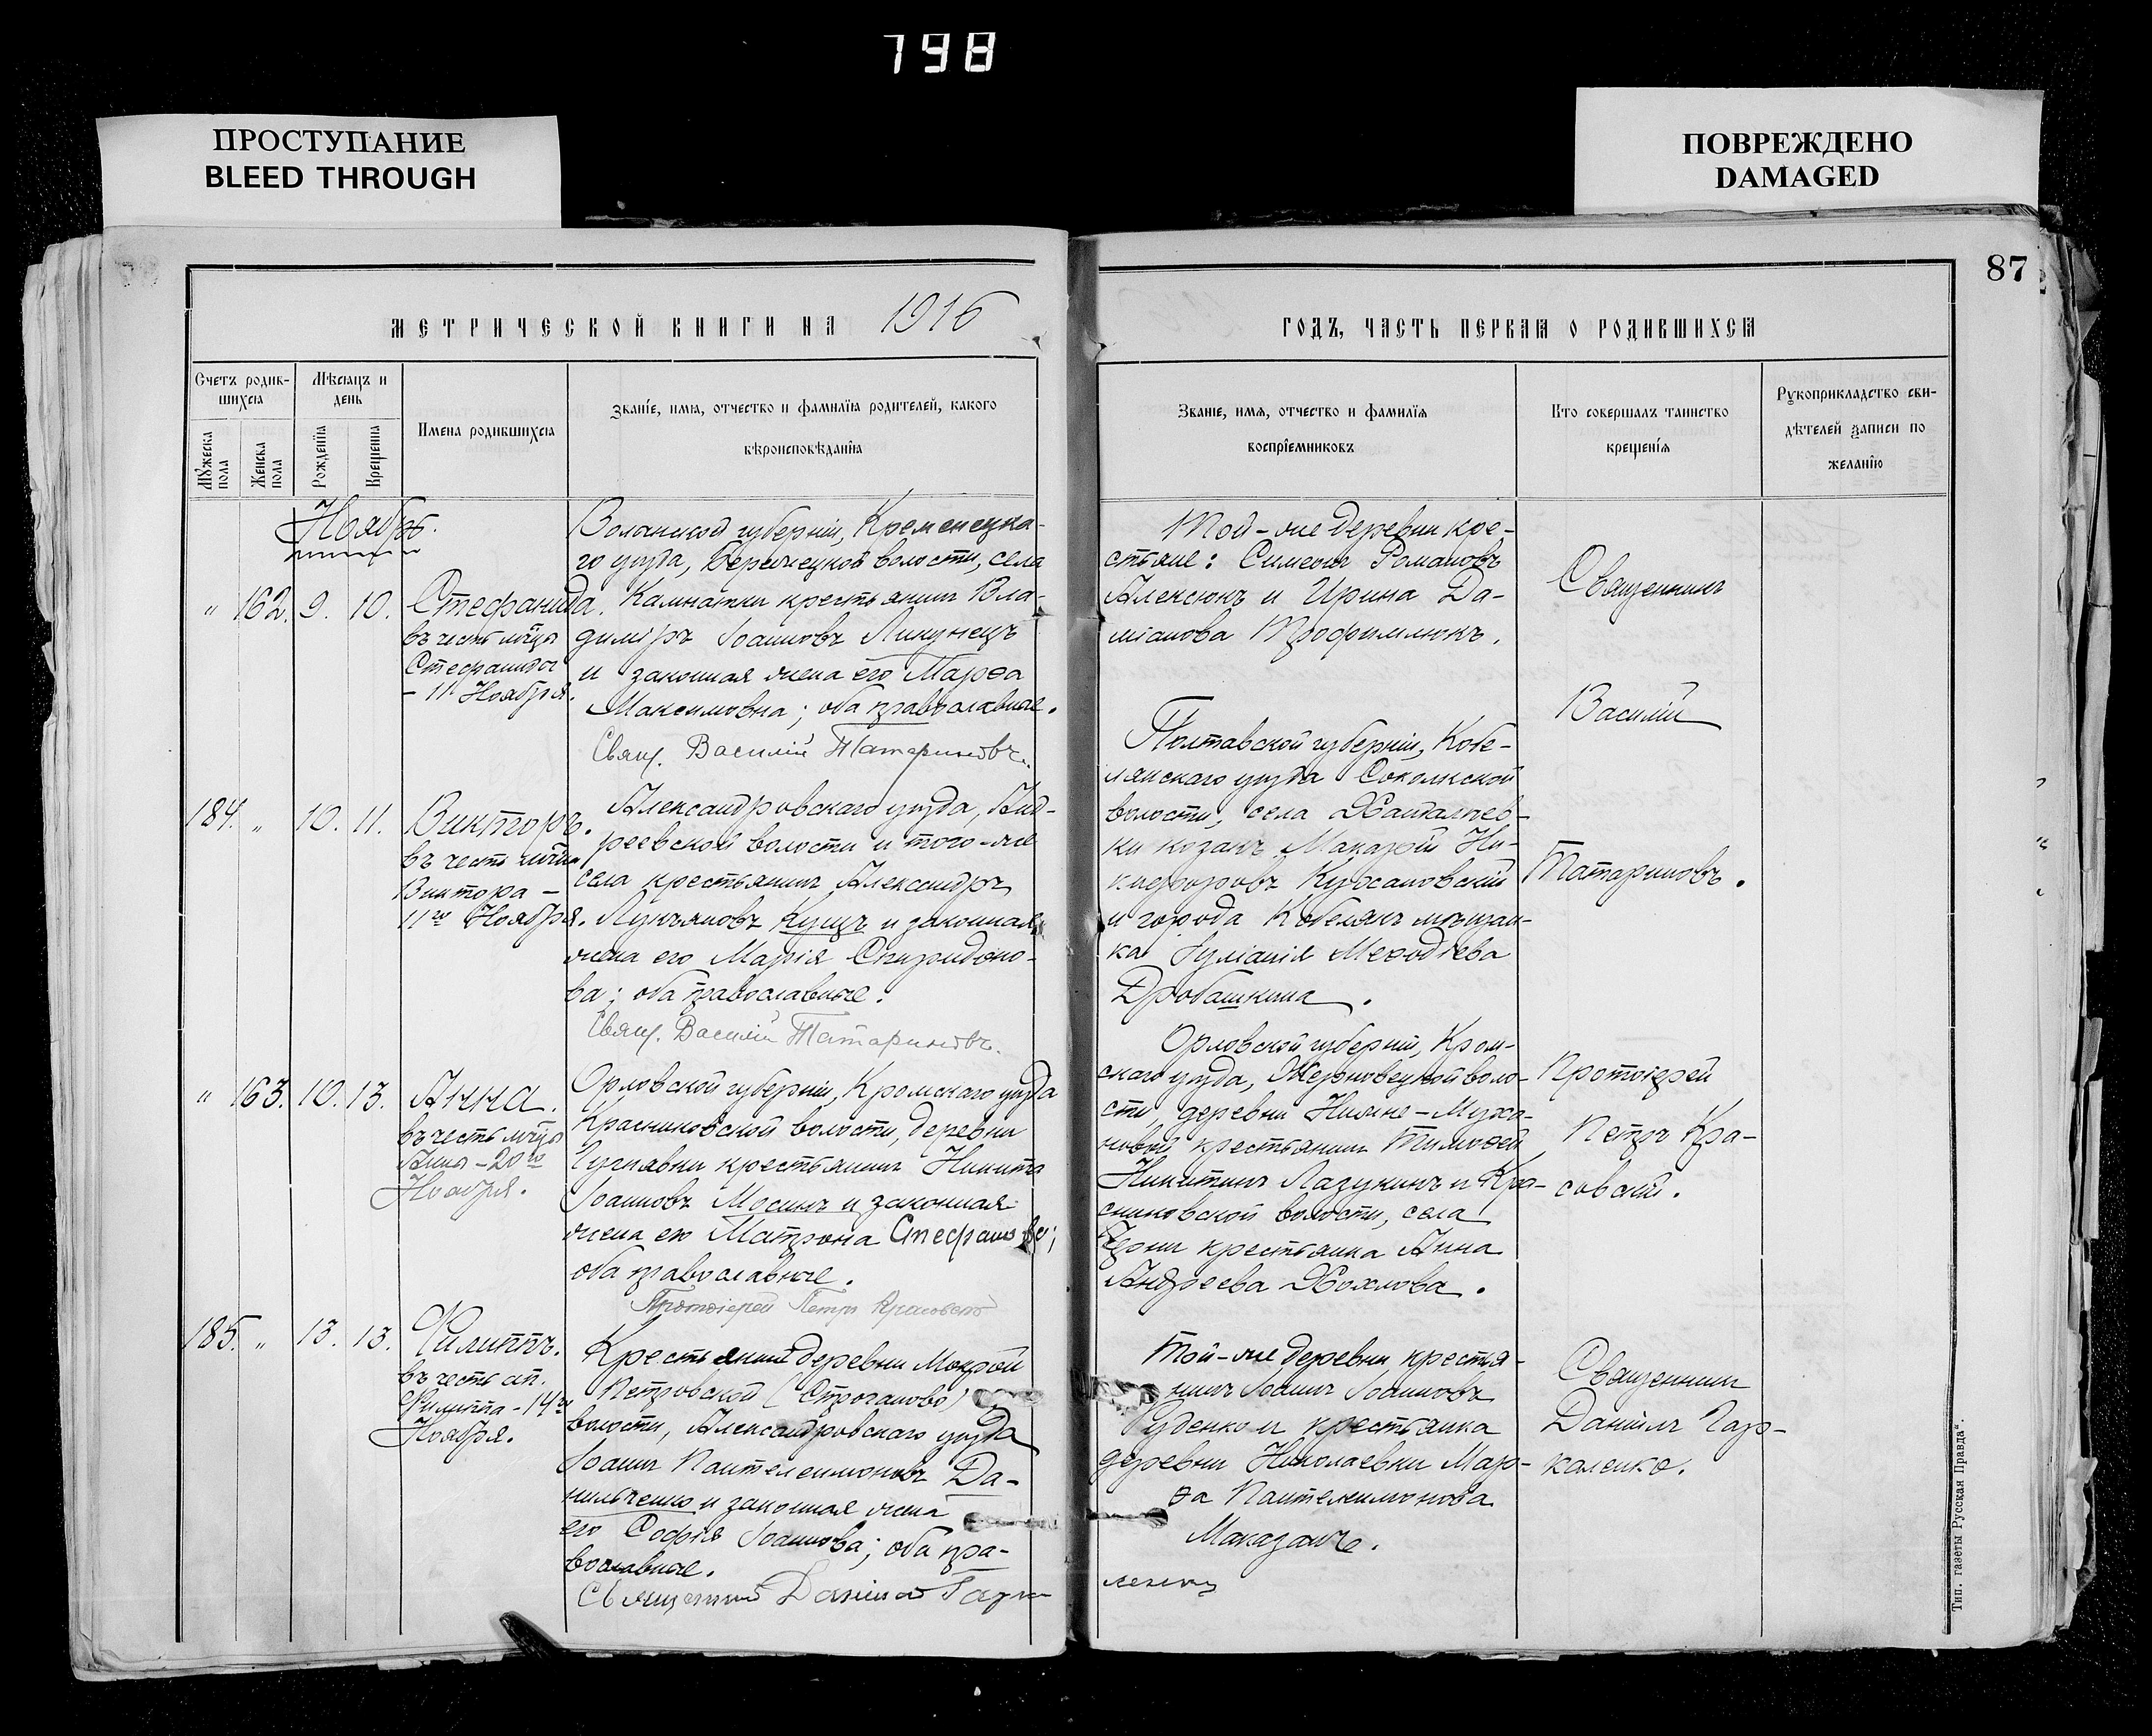 798
ПРОСТУПАНИЕ
BLEED THROUGH
ПОВРЕЖДЕНО
DAMAGED
87
МЕТРИЧЕСКОЙ КНИГИ НА 1916
ГОДЪ, ЧАСТЬ ПЕРВАЯ О РОДИВШИХСЯ
Счетъ родив-
шихся
Мѣсяцъ и
день
Мужеска
пола
Женска
пола
Рожденія
Крещенія
Имена родившихся
Званіе, имя, отчество и фамилія родителей, какого
вѣроисповѣданія
Званіе, имя, отчество и фамилія
воспріемниковъ
Кто совершалъ таинство
крещенія
Рукоприкладство сви-
дѣтелей записи по
желанію
Ноябрь.
" 162. 9. 10. Стефанида.
въ честь мцы
Стефаниды
- 11 Ноября.
Волынской губерніи, Кременецка-
го уѣзда, Бережецкой волости, села
Камнатки крестьянинъ Вла-
димiръ Іоанновъ
и законная жена его Марѳа
Максимовна; оба православные.
Свящ. Василій Татариновъ.
Той-же деревни кре-
стьяне: Симеонъ Романовъ
Алексюкъ и Ирина Да-
міанова Трофимлюкъ.
Священникъ
Василій
Татариновъ.
184. " 10. 11. Викторъ.
въ честь мчен.
Виктора -
11го Ноября.
Александровскаго уѣзда, Анд-
реевской волости и того-же
села крестьянинъ Александръ
Лукьяновъ Кущъ и законная
жена его Марія Спиридоно-
ва; оба православные.
Свящ. Василій Татариновъ.
Полтавской губерніи, Кобе-
лякскаго уѣзда Соколкской
волости, села
ки козакъ Макарій Ни-
кифоровъ
и города Кобелякъ мѣщан-
ка Іуліанія Меѳодіева
Дробашкина.
" 163. 10. 13. Анна.
въ честь мцы
Анны - 20го
Ноября.
Орловской губерніи, Кромскаго уѣзда
Красниковской волости, деревни
крестьянинъ Никита
Іоанновъ Мосинъ и законная
жена его Матрона Стефанова;
оба православные.
Протоіерей Петръ Красовскій
Орловской губерніи, Кром-
скаго уѣзда, Жерновецкой воло-
сти, деревни Нижне-Муха-
новой крестьянинъ Тимоѳей
Никитинъ Лазукинъ и Кра-
сниковской волости, села
крестьянка Анна
Андреева Хохлова.
Протоіерей
Петръ Кра-
совскій.
185. " 13. 13. Филиппъ.
въ честь ап.
Филиппа - 14го
Ноября.
Крестьянинъ деревни Мокрой
Петровской (Строганово)
волости, Александровскаго уѣзда
Іоаннъ Пантелеимоновъ Да-
нильченко и законная жена
его Софія Іоаннова; оба пра-
вославные.
Священникъ Даніилъ Гарка-
ленко
Той-же деревни крестья-
нинъ Іоаннъ Іоанновъ
Руденко и крестьянка
деревни Николаевки Мар-
ѳа Пантелеимонова
Священникъ
Даніилъ Гар-
каленко.
Тип. газеты „Русская Правда“.